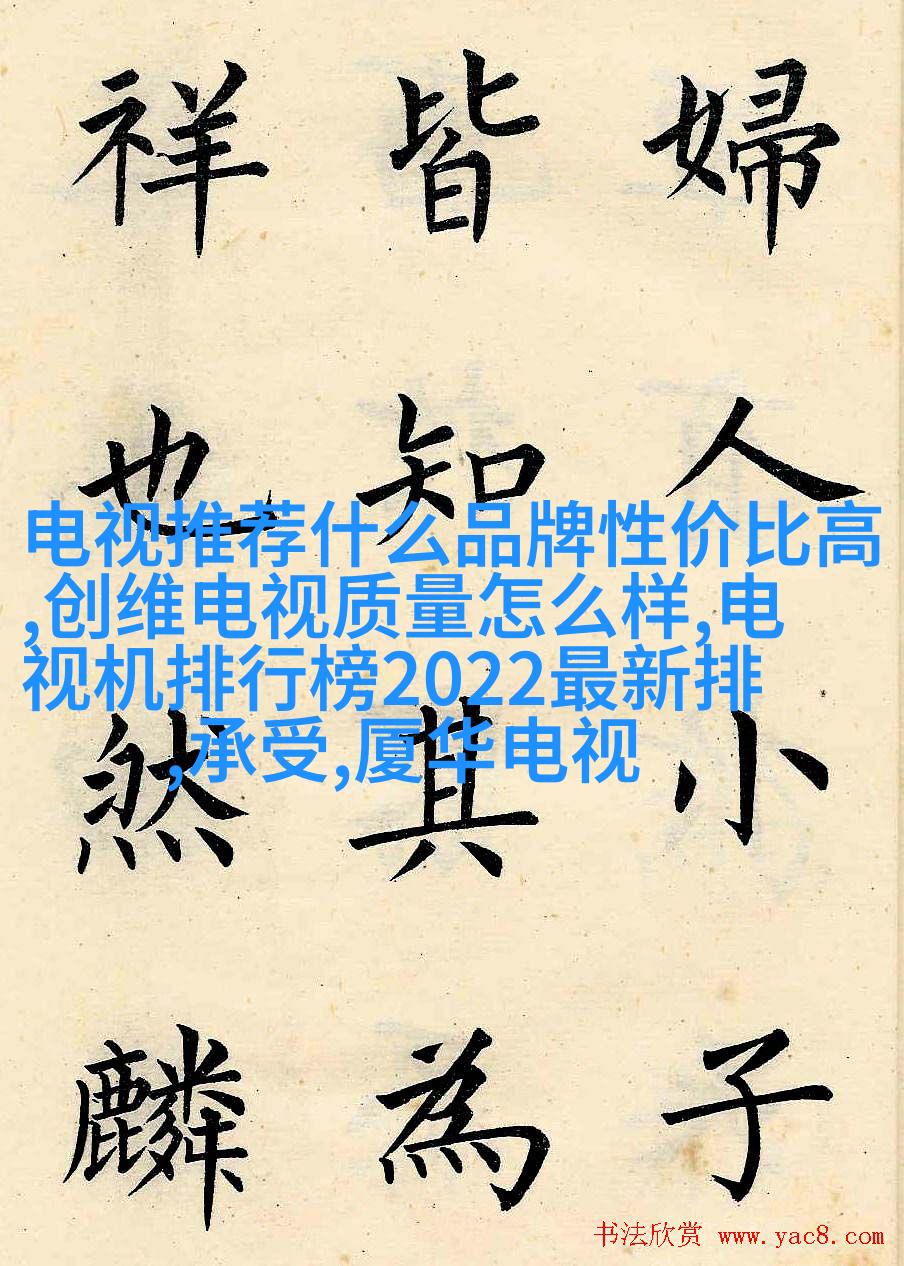 婦人小子
皆知其為
祥也然麟
电视推荐什么品牌性价比高
,创维电视质量怎么样,电
视机排行榜2022最新排
,承受,厦华电视
书法欣赏 www.yac8.com